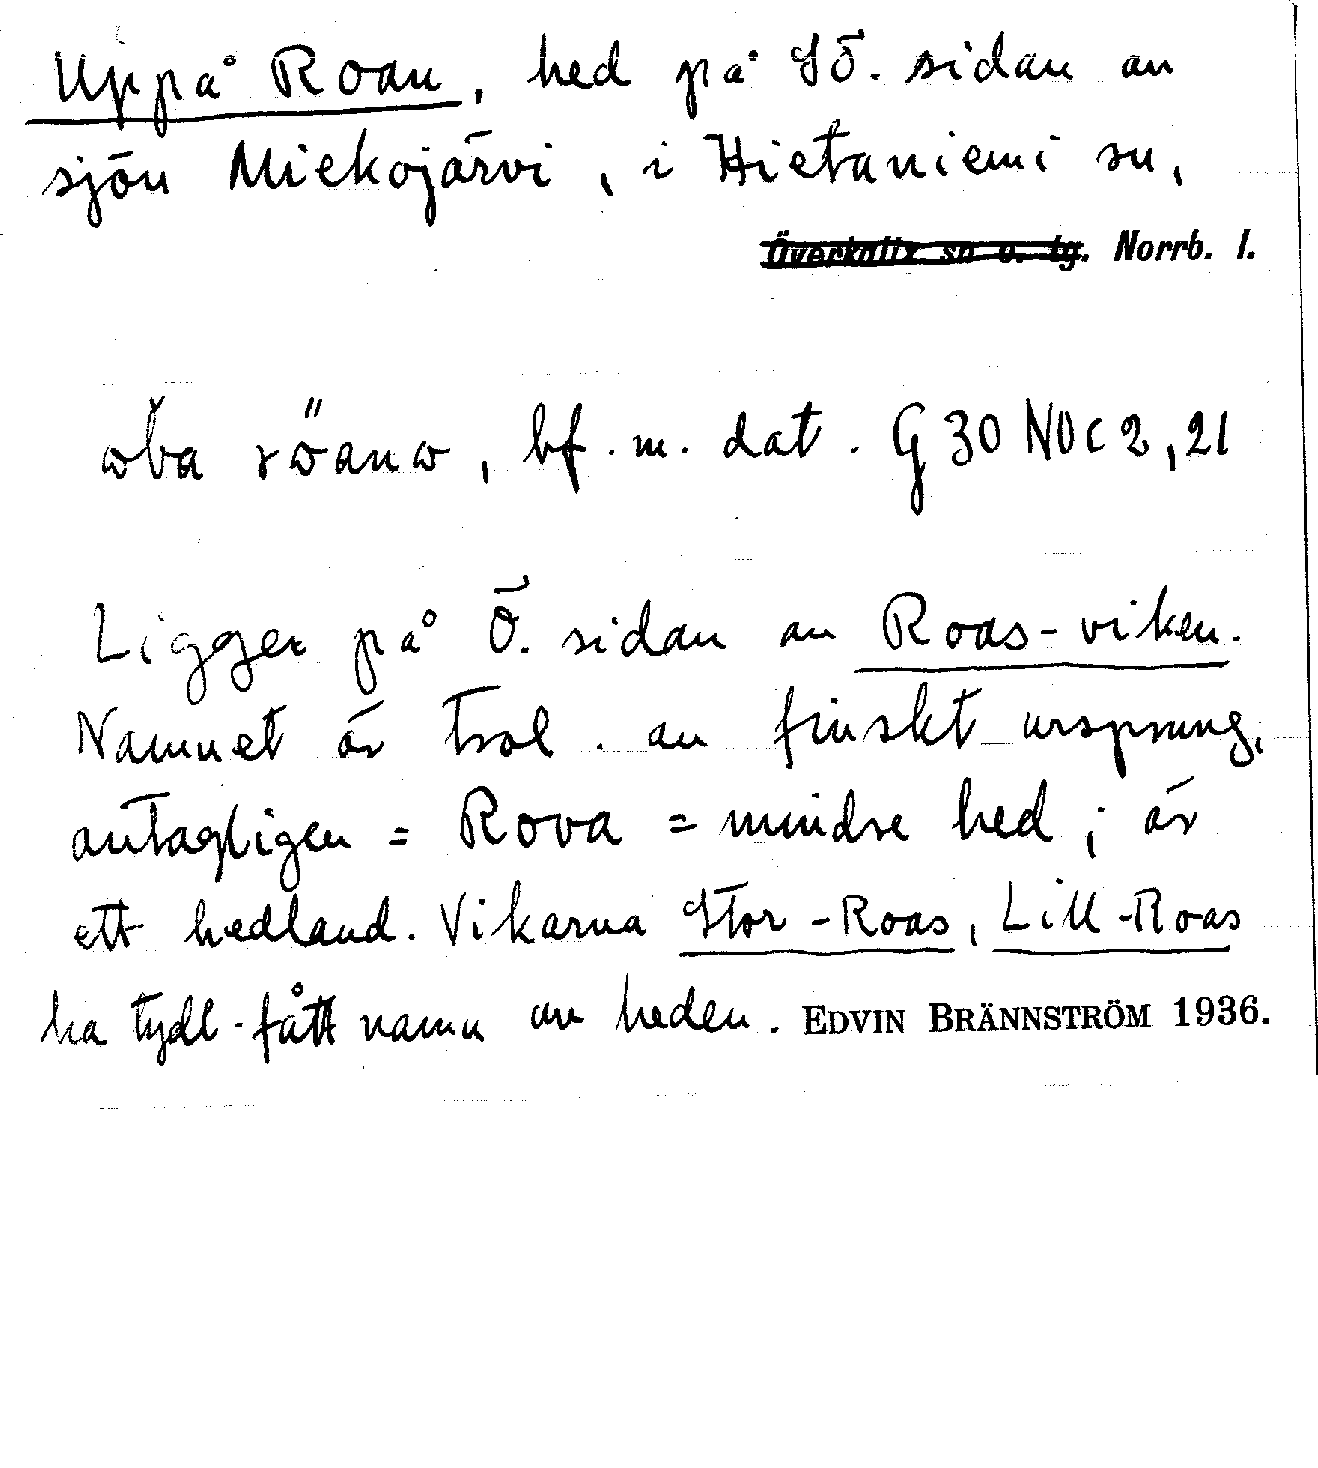 Uppå Roan, hed på SÖ. sidan av
sjön Miekojärvi, i Hietaniemi sn,
Överkalix sn o. tg. Norrb. l.
ωba rωanω, bf. m. dat. G 30 NV c 2, 21
Ligger på Ö. sidan av Roas-viken.
Namnet är trol. av finskt ursprung,
antagligen = Rova = mindre hed; är
ett hedland. Vikarna Stor-Roas, Lill-Roas
ha tydl. fått namn av heden. EDVIN BRÄNNSTRÖM 1936.